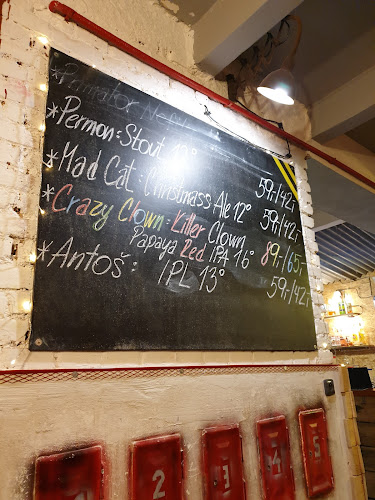 * Primator
* Permon: Stout 59,-/42,-
* Mad Cat: Christmass Ale 12° 59,-/42,-
* Crazy Clown: Killer Clown
Papaya Red IPA 16° 89,-/65,-
* Antoš: IPL 13° 59,-/42,-
1 2 3 4 5